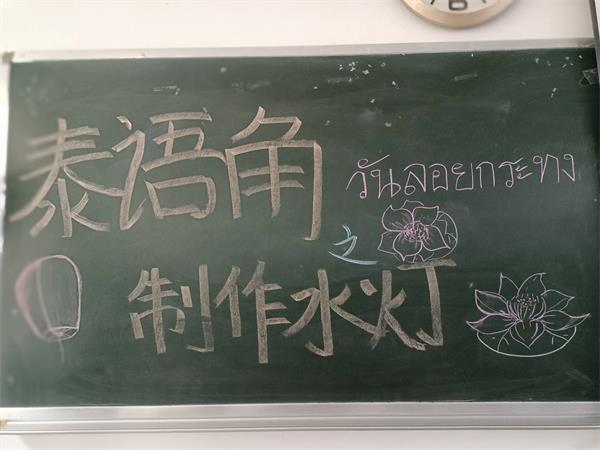 泰语角
วันลอยกระทง
之
制作水灯